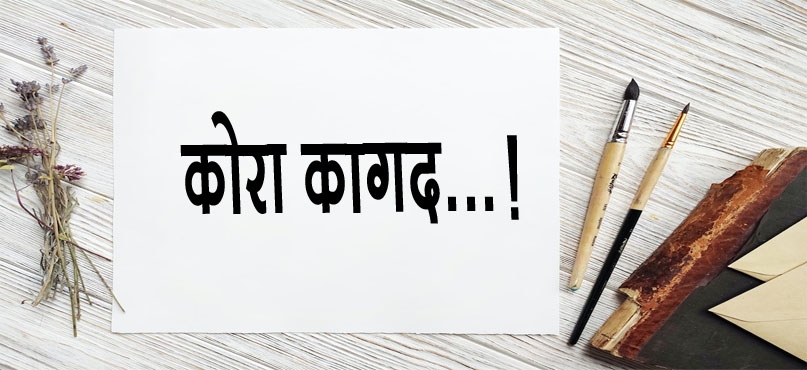 कोरा कागद...!